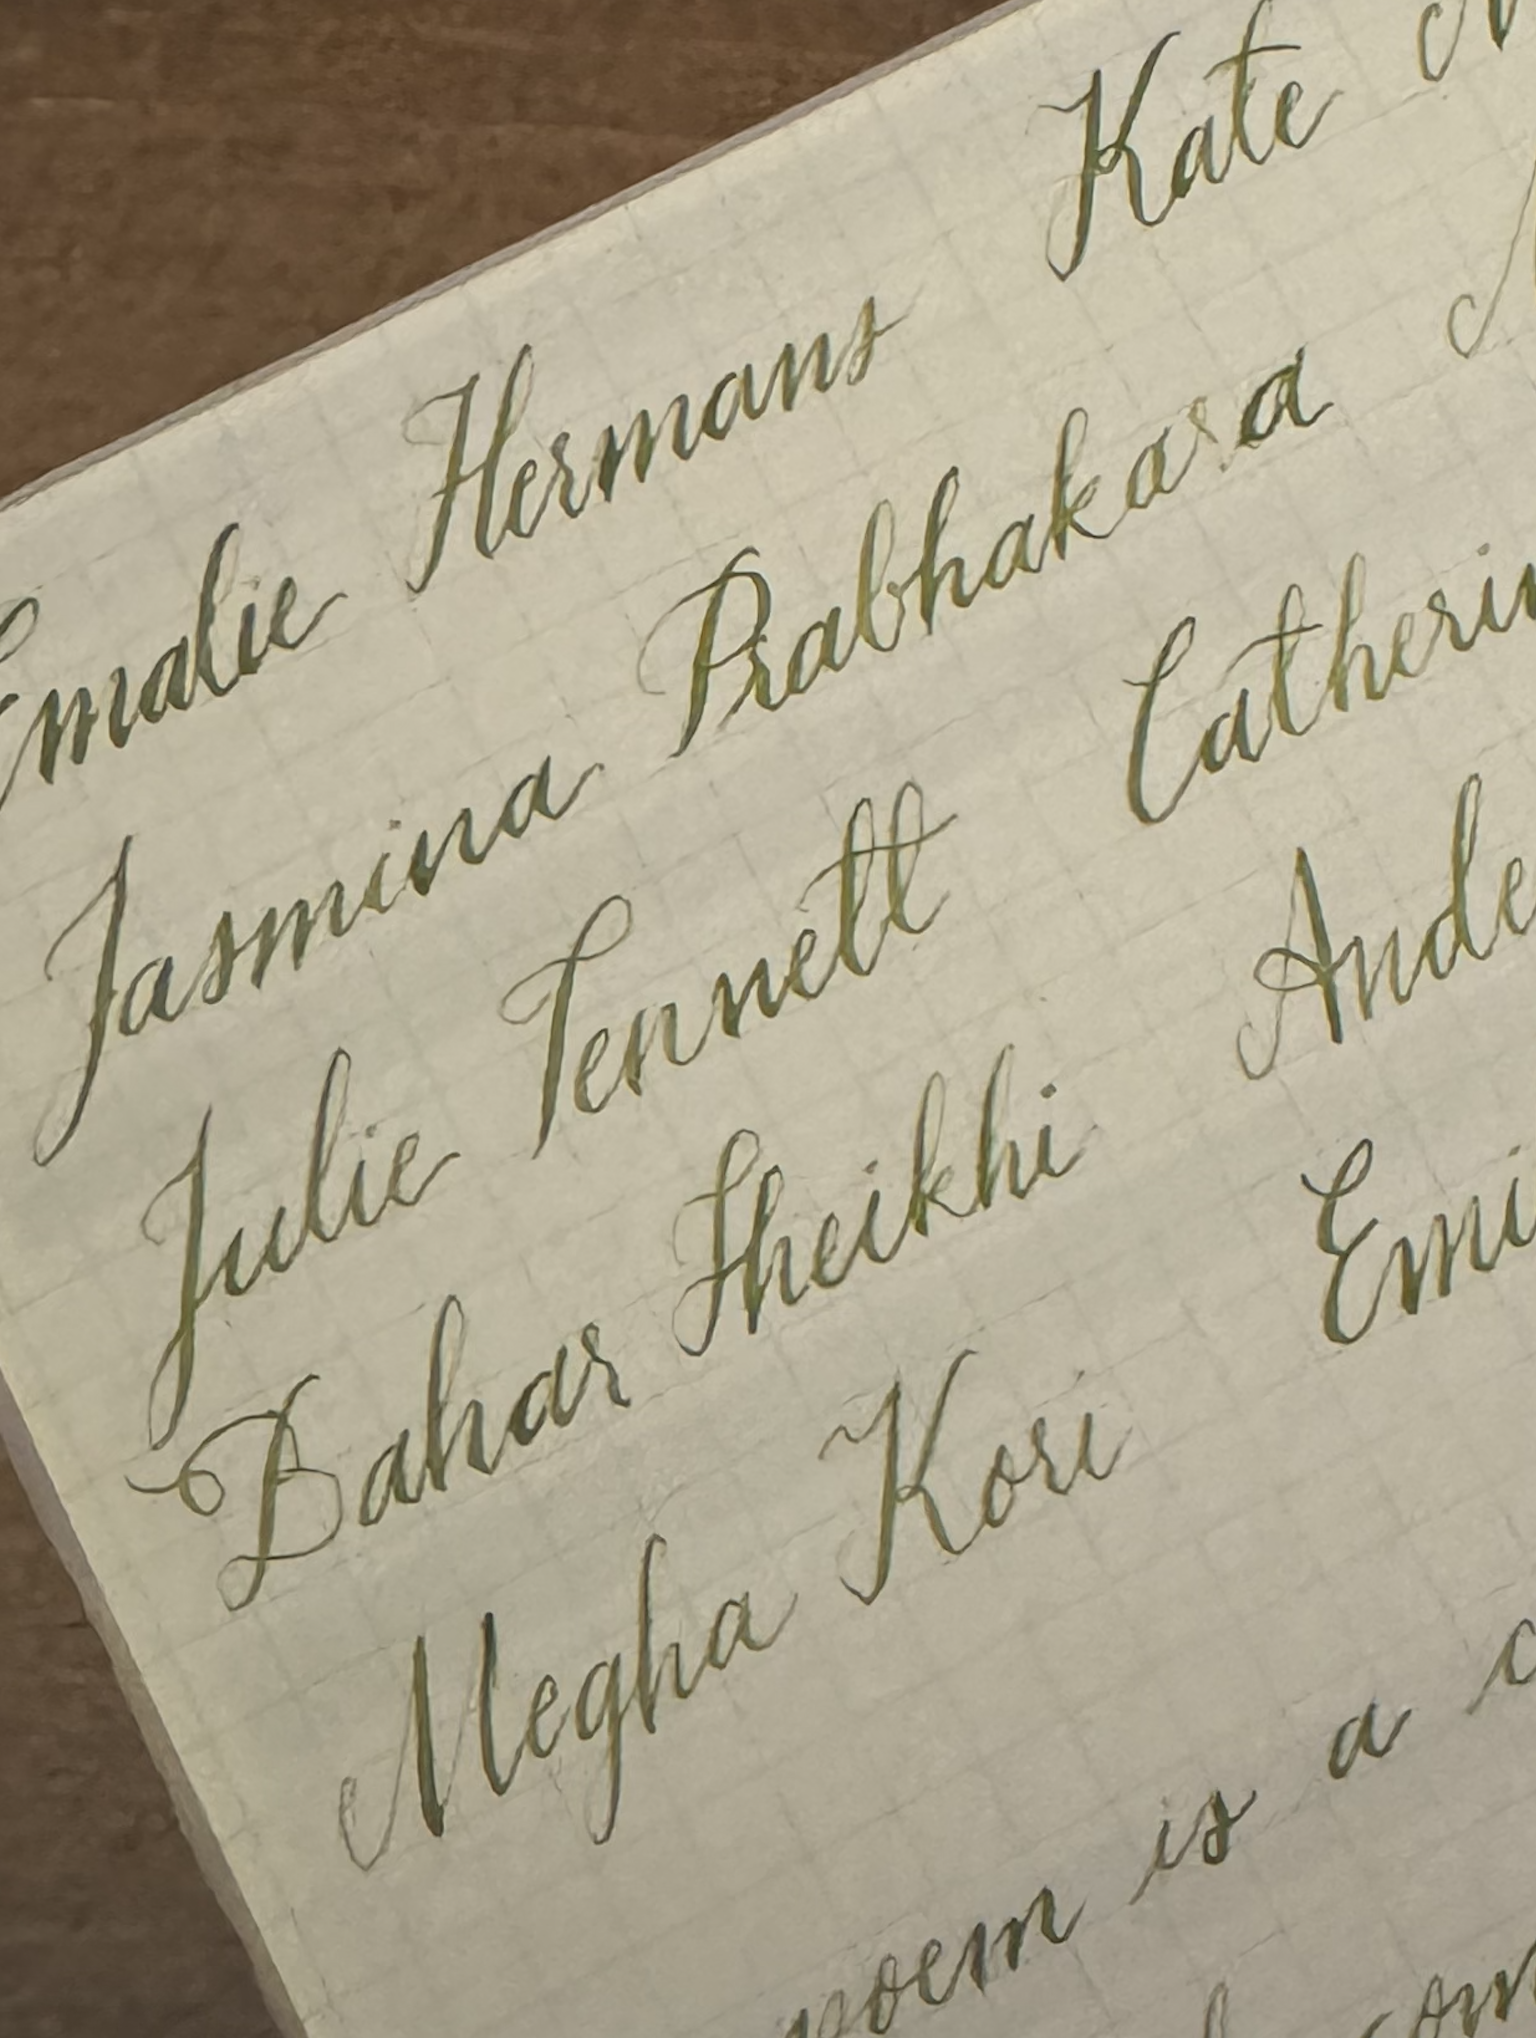 Emalie Hermans Kate
Jasmina Prabhakara
Julie Tennett Catherin
Bahar Sheikhi Ande
Megha Kori Emi
poem is a